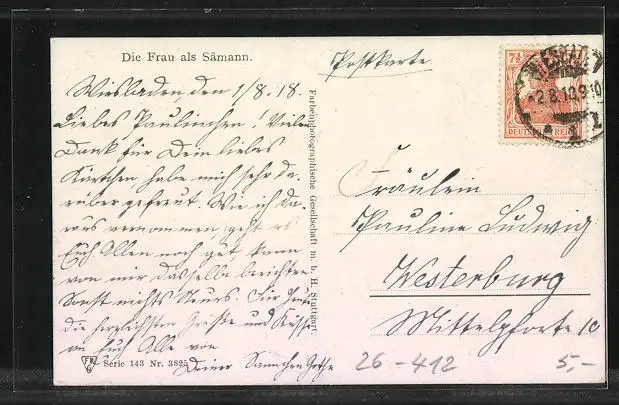 Die Frau als Sämann.
Postkarte
Wiesbaden, den 1/8. 18.
Liebes Paulinchen! Vielen
Dank für Dein liebes
Kärtchen habe mich sehr da-
rüber gefreut. Wie ich da-
raus vernommen, geht es
Euch Allen noch gut, kann
von mir dasselbe berichten
Sonst nichts Neues. Für heute
die herzlichsten Grüße und Küsse
an Euch Alle von
Deiner
Farbenphotographische Gesellschaft m. b. H. Stuttgart.
Serie 143 Nr. 3825
7½
DEUTSCHES REICH
2.8.18.9-10
Fräulein
Pauline Ludwig
Westerburg
Mittelpforte 10
26-412
5,-